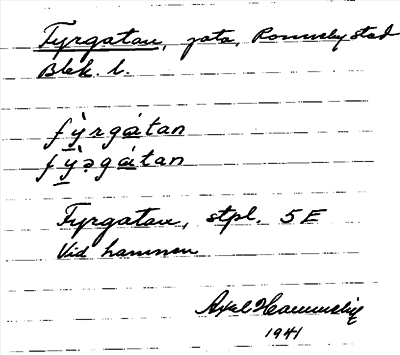 Fyrgatan, gata, Ronneby stad
Blek. l.
fỳrgátan
fỳəgátan
Fyrgatan, stpl. 5E
Vid hamnen
Axel
1941